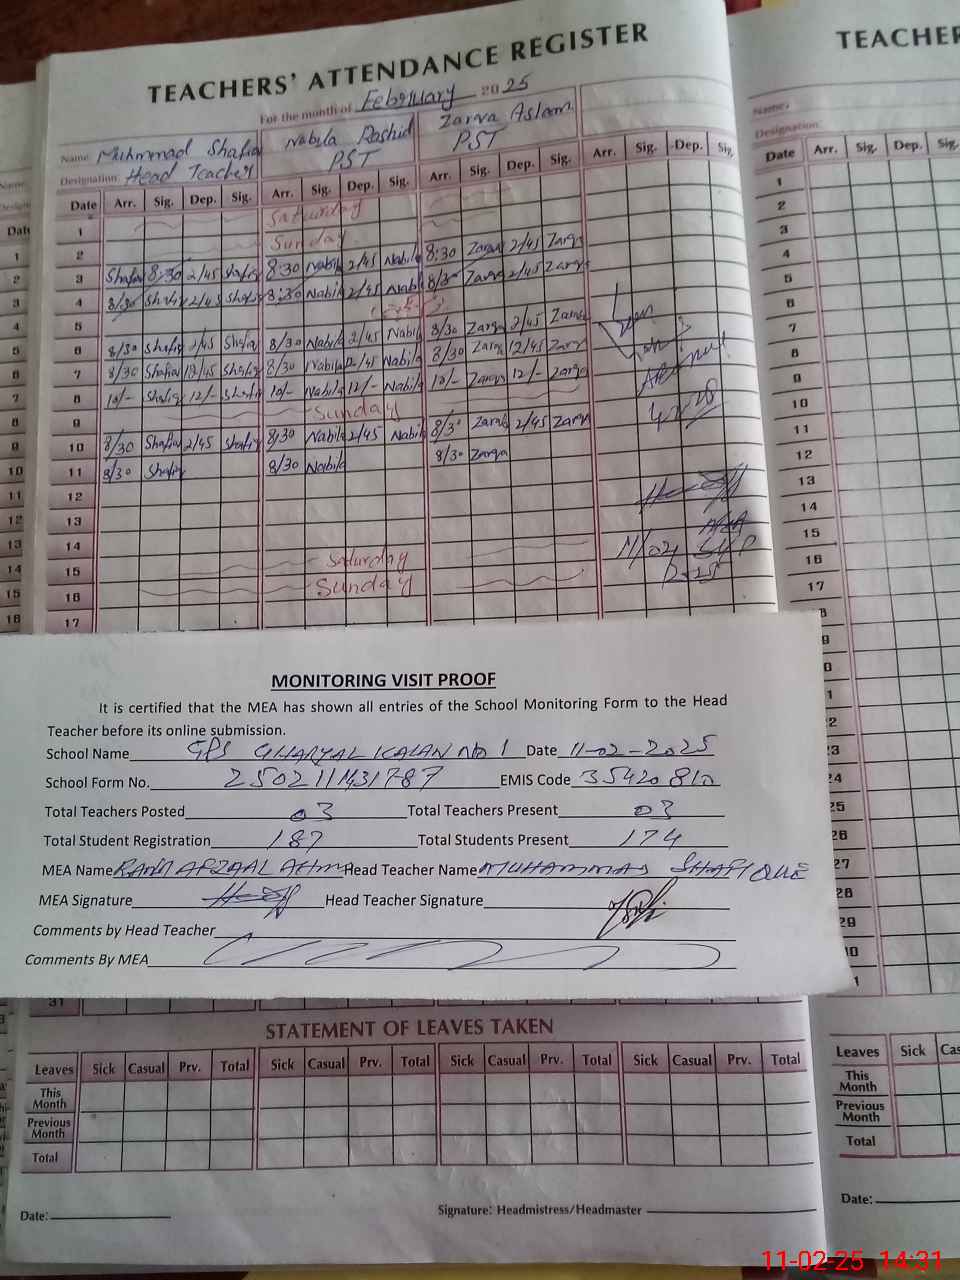 TEACHERS' ATTENDANCE REGISTER
For the month of February 2025
Name: Muhmmad Shafiq Nabila Rashid Zarva Aslam
Designation: Head Teacher PST PST
Date Arr. Sig. Dep. Sig. Arr. Sig. Dep. Sig. Arr. Sig. Dep. Sig. Arr. Sig. Dep. Sig.
1 Saturday
2 Sunday
3 Shafiq 8:30 2/45 Shafiq 8:30 Nabila 2/45 Nabila 8:30 2/45
4 8/30 Shafiq 2/45 Shafiq 8:30 Nabila 2/45 Nabila 8/30 2/45
5
6 8/30 Shafiq 2/45 Shafiq 8/30 Nabila 2/45 Nabila 8/30 2/45
7 8/30 Shafiq 12/45 Shafiq 8/30 Nabila 12/45 Nabila 8/30 12/45
8 10/- Shafiq 12/- Shafiq 10/- Nabila 12/- Nabila 10/- 12/-
9 Sunday
10 8/30 Shafiq 2/45 Shafiq 8/30 Nabila 2/45 Nabila 8/30 2/45
11 8/30 Shafiq 8/30 Nabila 8/30
12
13
14
15 Saturday
16 Sunday
17
MEA
MONITORING VISIT PROOF
It is certified that the MEA has shown all entries of the School Monitoring Form to the Head
Teacher before its online submission.
School Name GPS GHARYAL KALAN No 1 Date 11-02-2025
School Form No. EMIS Code 35420810
Total Teachers Posted 03 Total Teachers Present 03
Total Student Registration 187 Total Students Present 174
MEA Name RANA AFZAAL AHMAD Head Teacher Name MUHAMMAD SHAFIQUE
MEA Signature Head Teacher Signature
Comments by Head Teacher
Comments By MEA
31
STATEMENT OF LEAVES TAKEN
Leaves Sick Casual Prv. Total Sick Casual Prv. Total Sick Casual Prv. Total Sick Casual Prv. Total
This Month
Previous Month
Total
Date: Signature: Headmistress/Headmaster
TEACHER
Name:
Designation:
Date Arr. Sig. Dep. Sig.
1
2
3
4
5
6
7
8
9
10
11
12
13
14
15
16
17
Leaves Sick Cas
This Month
Previous Month
Total
Date:
11-02-25 14:31